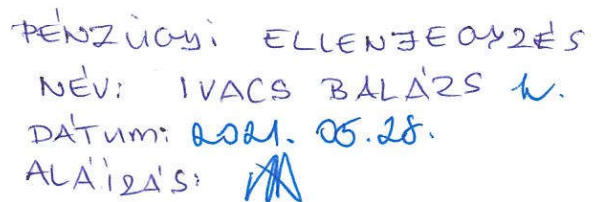 PÉNZÜGYI ELLENJEGYZÉS
NÉV: IVACS BALÁZS h.
DÁTUM: 2021. 05. 28.
ALÁÍRÁS: